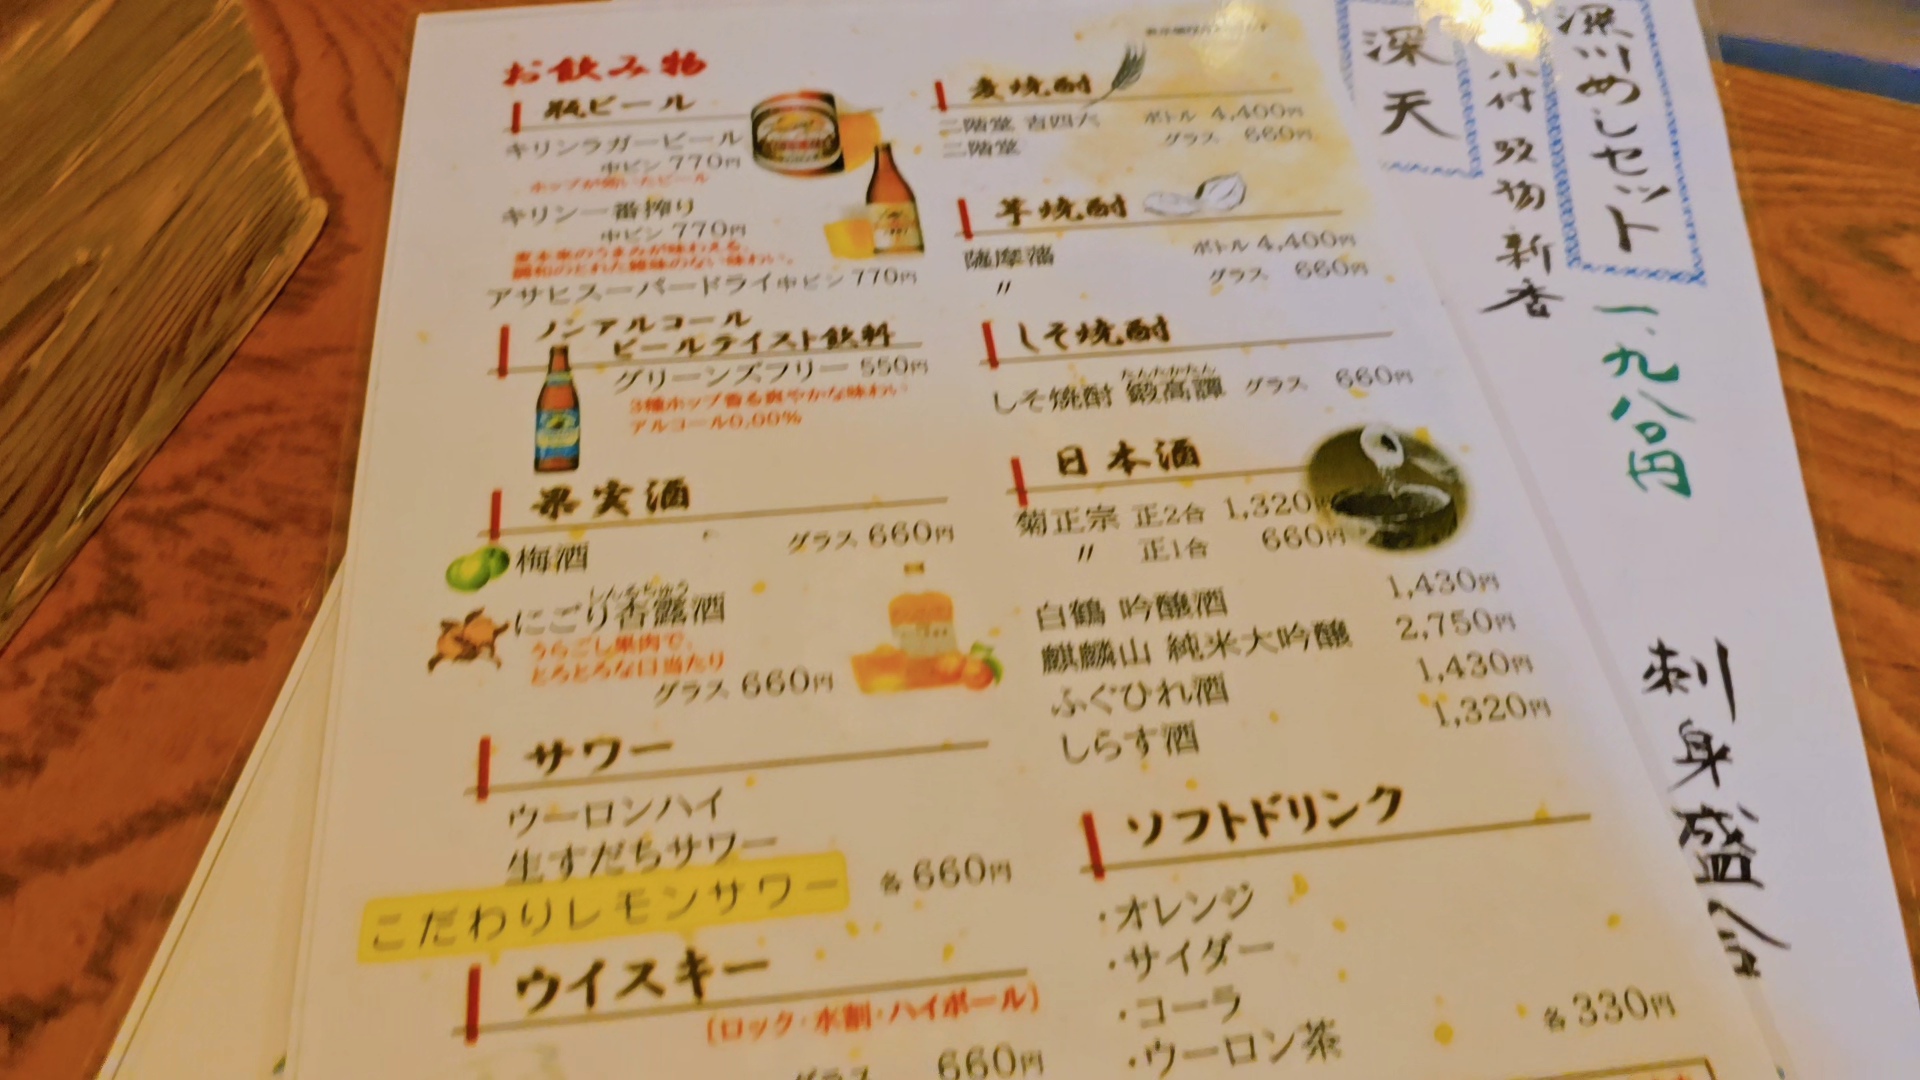 お飲み物
瓶ビール
キリンラガービール
中ビン 770円
ホップが効いたビール
キリン一番搾り
中ビン 770円
麦本来のうまみが味わえる、
調和のとれた雑味のない味わい。
アサヒスーパードライ 中ビン 770円
ノンアルコール
ビールテイスト飲料
グリーンズフリー 550円
3種ホップ香る爽やかな味わい
アルコール0.00%
果実酒
梅酒 グラス 660円
しんるちゅう
にごり杏露酒
うらごし果肉で、
とろとろな口当たり
グラス 660円
サワー
ウーロンハイ
生すだちサワー
こだわりレモンサワー
各 660円
ウイスキー
(ロック・水割・ハイボール)
グラス 660円
麦焼酎
二階堂 吉四六 ボトル 4,400円
二階堂 グラス 660円
芋焼酎
薩摩藩 ボトル 4,400円
〃 グラス 660円
しそ焼酎
たんたかたん
しそ焼酎 鍛高譚 グラス 660円
日本酒
菊正宗 正2合 1,320円
〃 正1合 660円
白鶴 吟醸酒 1,430円
麒麟山 純米大吟醸 2,750円
ふぐひれ酒 1,430円
しらす酒 1,320円
ソフトドリンク
・オレンジ
・サイダー
・コーラ
・ウーロン茶
各 330円
深川めしセット
一、九八〇円
付 吸物 新香
深天
刺身盛合